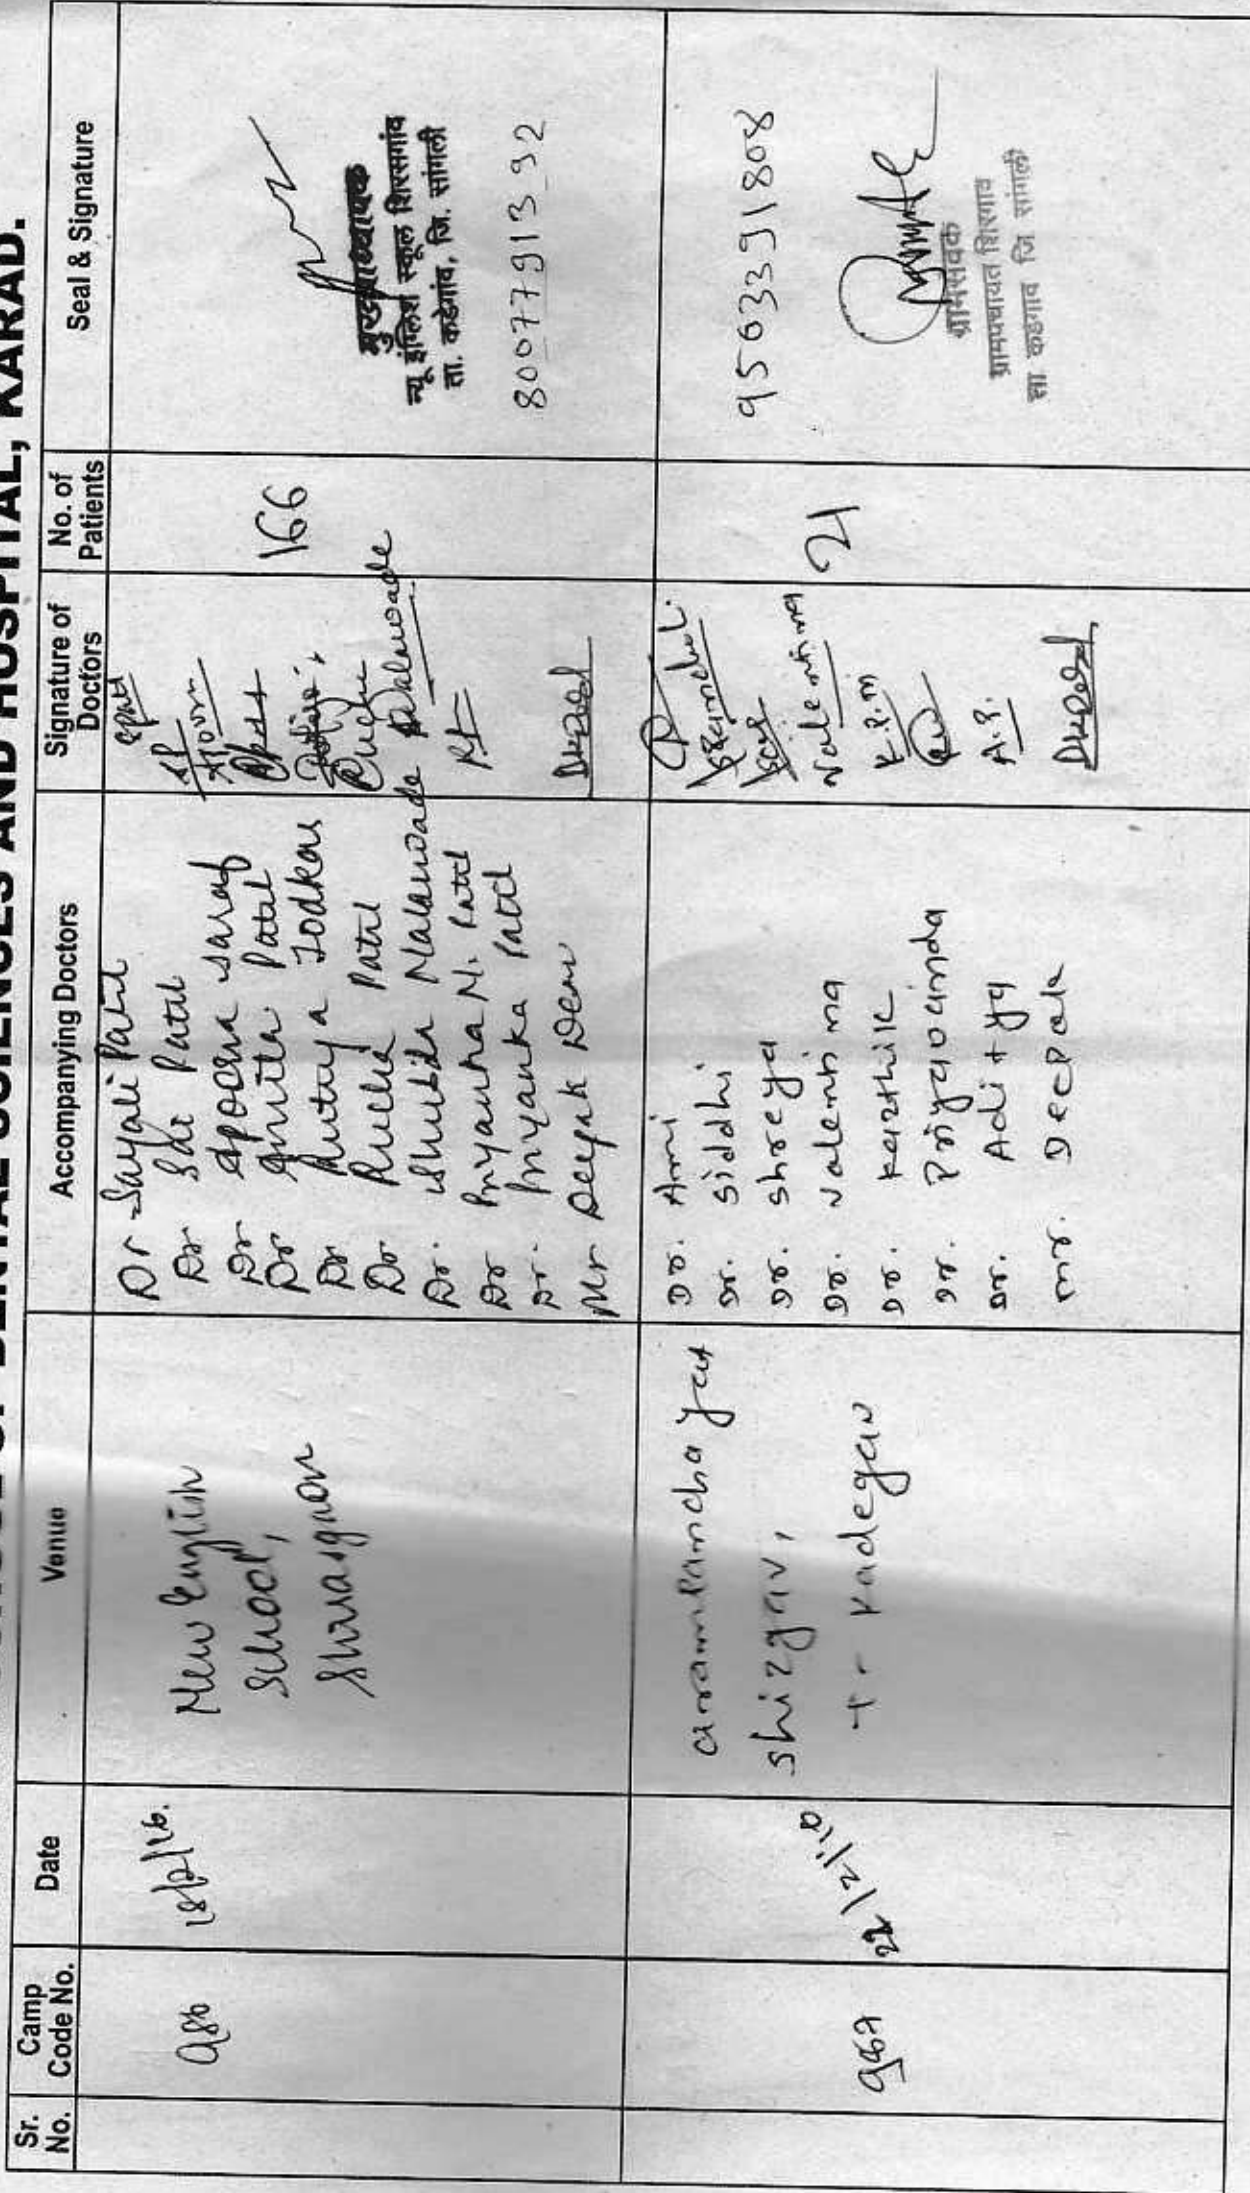 DENTAL SCIENCES AND HOSPITAL, KARAD.
Sr. No.
Camp Code No.
Date
Venue
Accompanying Doctors
Signature of Doctors
No. of Patients
Seal & Signature
986
18/2/16.
New English
School,
Dr Sayali Patil
Dr Sai Patil
Dr Apoorva Saraf
Dr Patil
Dr Jodkar
Dr Patil
Dr. Nalawade
Dr Priyanka M. Patil
Dr. Priyanka Patil
Mr Deepak
Nalawade
166
मुख्याध्यापक
न्यू इंग्लिश स्कूल शिरसगांव
ता. कडेगांव, जि. सांगली
8007791392
987
shirgav,
t- kadegav
Dr. Ami
Dr. Siddhi
Dr. Shreya
Dr. Valentina
Dr. Karthik
Dr. Priyavainda
Dr. Aditya
Mr. Deepak
Valentina
K.P.M
A.P.
21
9563391808
ग्रामसेवक
ग्रामपंचायत शिरसगांव
ता कडेगाव जि सांगली